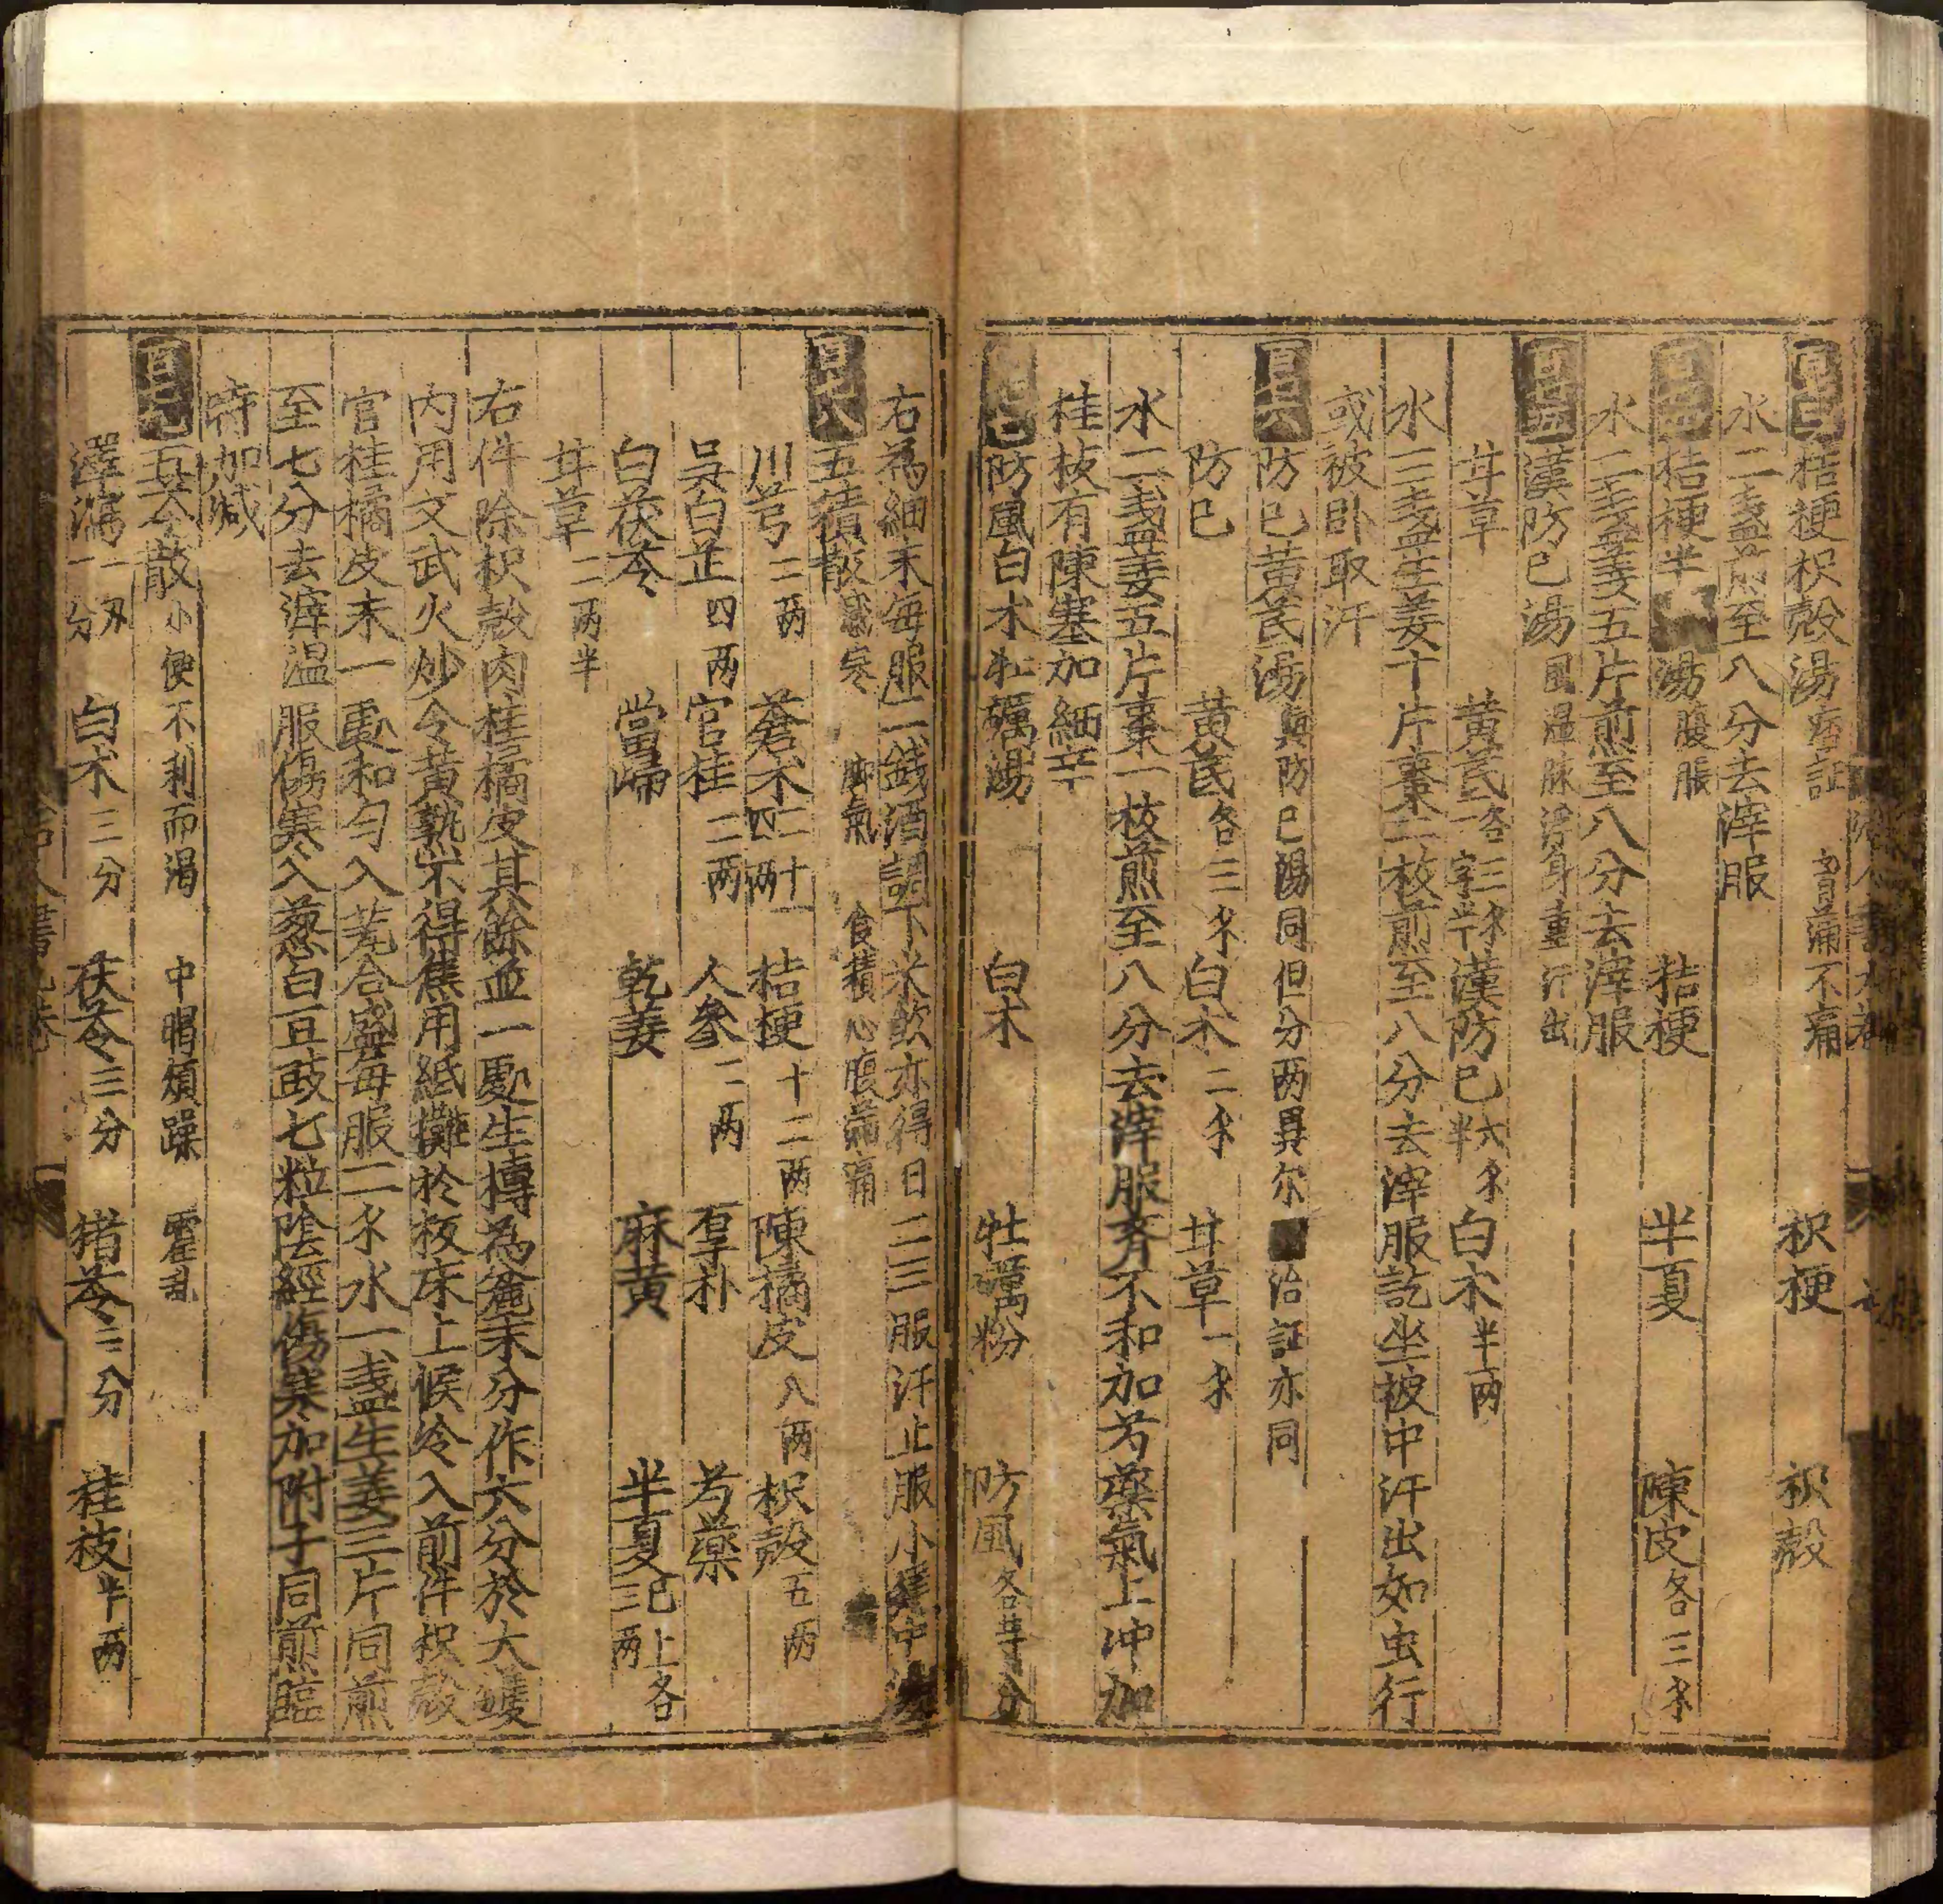 百三 桔梗枳殻湯 痞証 胷滿不痛
桔梗 枳殻
水二盞煎至八分去滓服
百四 桔梗半夏湯 腹脹
桔梗 半夏 陳皮各三𠆤
水二盞姜五片煎至八分去滓服
百五 漢防已湯 風濕脉浮身重汗出
甘草 黄芪各三𠆤一字半 漢防已六𠆤半 白木半两
水三盞生姜十片棗二枚煎至八分去滓服訖坐被中汗出如虫行
或被卧取汗
百六 防巳黄芪湯 與防巳湯同但分两異尔 治証亦同
防巳 黄芪各三𠆤 白木二𠆤 甘草一𠆤
水二盞姜五片棗一枚煎至八分去滓服斉不和加芍藥氣上冲加
桂枝有陳塞加細辛
防風白木牡礪湯
白木 牡蠣粉 防風各等分
右為細末每服二錢酒調下米飲亦得日二三服汗止服小建中湯
百八 五積散 感寒 脚氣 食積心腹滿痛
川芎二两 蒼木二十四两 桔梗十二两 陳橘皮八两 枳殻五两
吳白芷四两 官桂二两 人參二两 厚朴 芍藥
白茯苓 當歸 乾姜 麻黄 半夏已上各三两
甘草二两半
右件除枳殻肉桂橘皮其餘並一處生擣為麄末分作六分於大鑊
内用文武火炒令黄熟不得焦用紙攤於板床上候冷入前件枳殻
官桂橘皮末一處和勻入甆合盛每服二𠆤水一盞生姜三片同煎
至七分去滓温服傷寒入葱白豆豉七粒陰經傷寒加附子同煎臨
時加減
百九 五苓散 小便不利而渴 中暍煩躁 霍乱
澤瀉一两一分 白术三分 茯苓三分 猪苓三分 桂枝半两